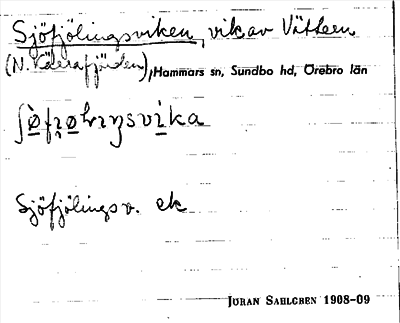 Sjöfjölingsviken, vik av Vättern
(N. Kärrafjärden), Hammars sn, Sundbo hd, Örebro län
Sjöfjölingsv. ek
JÖRAN SAHLGREN 1908-09